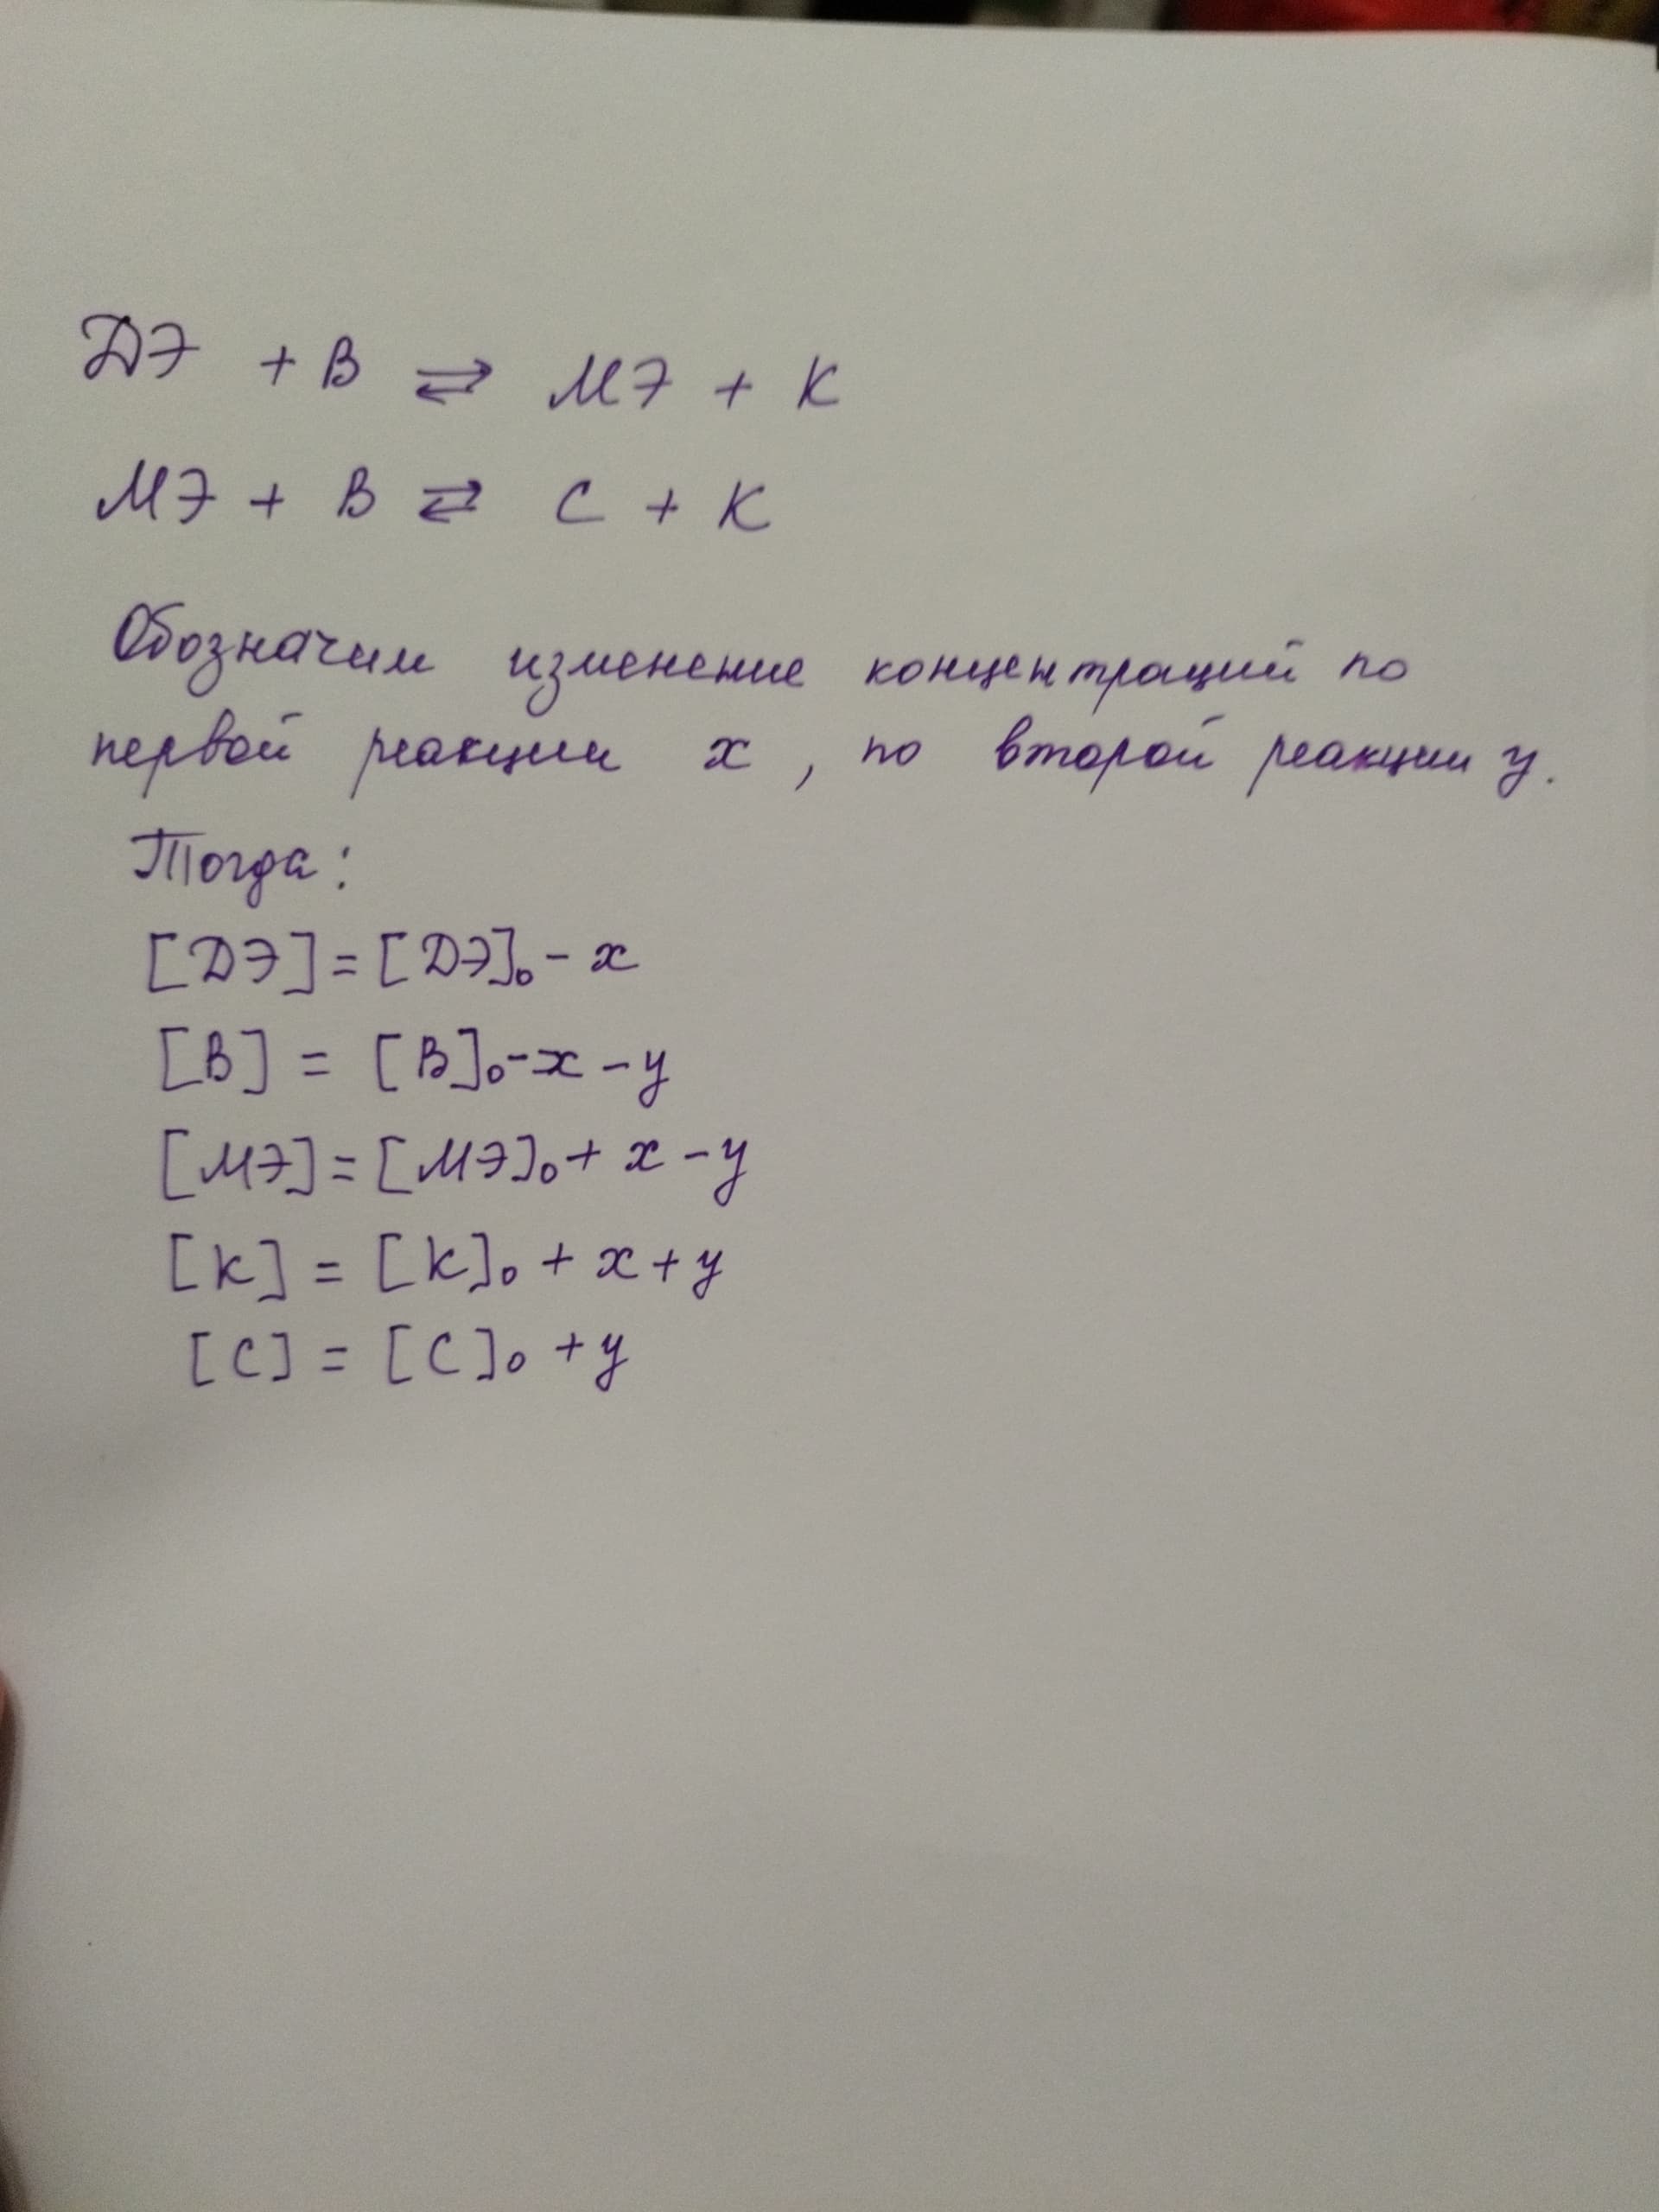 ДЭ + В ⇄ МЭ + К
МЭ + В ⇄ С + К
Обозначим изменение концентраций по
первой реакции x, по второй реакции y.
Тогда:
[ДЭ] = [ДЭ]₀ - x
[В] = [В]₀ - x - y
[МЭ] = [МЭ]₀ + x - y
[К] = [К]₀ + x + y
[С] = [С]₀ + y